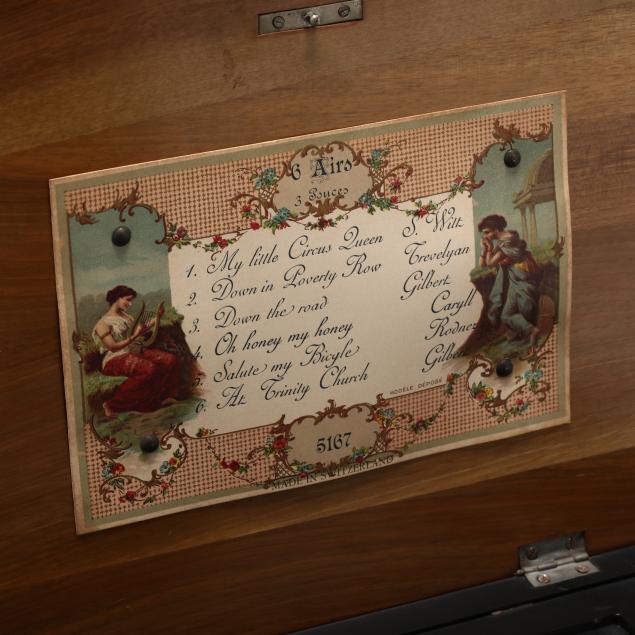 6 Airs
3 Pouces
1. My little Circus Queen S. Wilt
2. Down in Poverty Row Trevelyan
3. Down the road Gilbert
4. Oh honey my honey Caryll
5. Salute my Bicyle Rodney
6. At Trinity Church Gilbert
MODÈLE DÉPOSÉ
5167
MADE IN SWITZERLAND